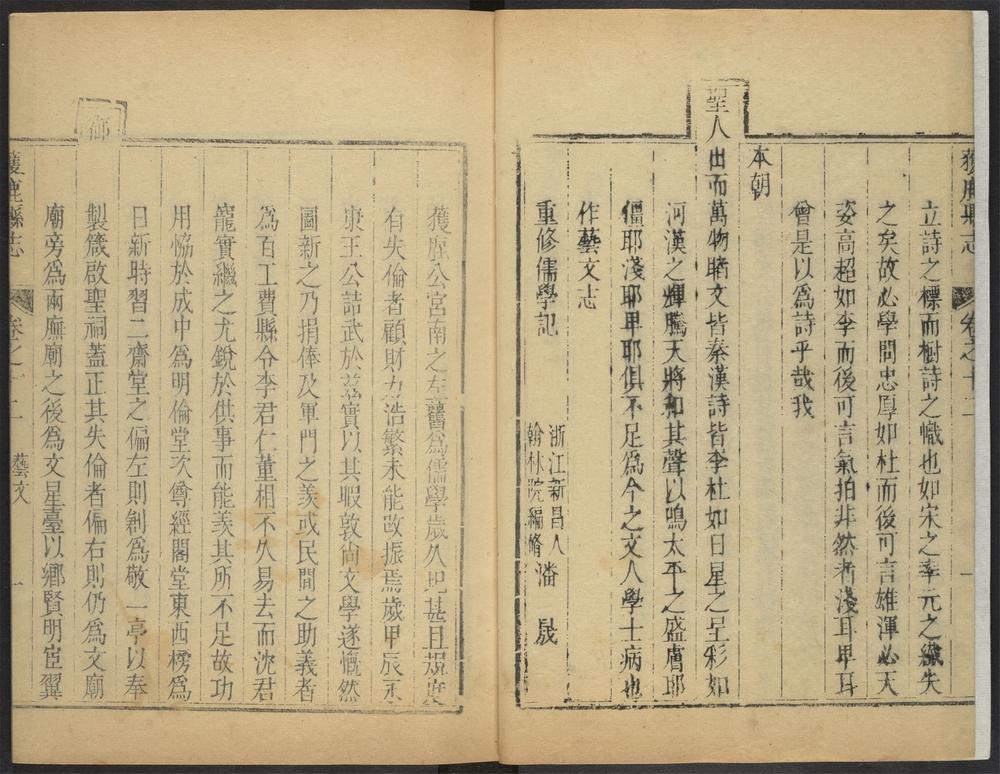 獲鹿縣志
卷之十二
一
立詩之標而樹詩之幟也如宋之率元之纖失
之矣故必學問忠厚如杜而後可言雄渾必天
姿高超如李而後可言氣拍非然者淺耳卑耳
曾是以為詩乎哉我
本朝
聖人出而萬物睹文皆秦漢詩皆李杜如日星之呈彩如
河漢之輝騰天將和其聲以鳴太平之盛膚耶
僵耶淺耶卑耶俱不足為今之文人學士病也
作藝文志
重修儒學記
浙江新昌人
翰林院編脩
潘晟
獲鹿公宮南之左舊為儒學歲久圯甚且規度
有失倫者顧財力浩繁未能改振焉歲甲辰
康王公詰武於茲實以其暇敦尚文學遂慨然
圖新之乃捐俸及軍門之羨或民間之助義者
為百工費縣令李君仁董相不久易去而沈君
籠實繼之尤銳於供事而能羨其所不足故功
用恊於成中為明倫堂次尊經閣堂東西楞為
日新時習二齋堂之偏左則剏為敬一亭以奉
製箴啟聖祠蓋正其失倫者偏右則仍為文廟
廟旁為兩廡廟之後為文星臺以鄉賢明宦翼
御
獲鹿縣志
卷之十二
藝文
一